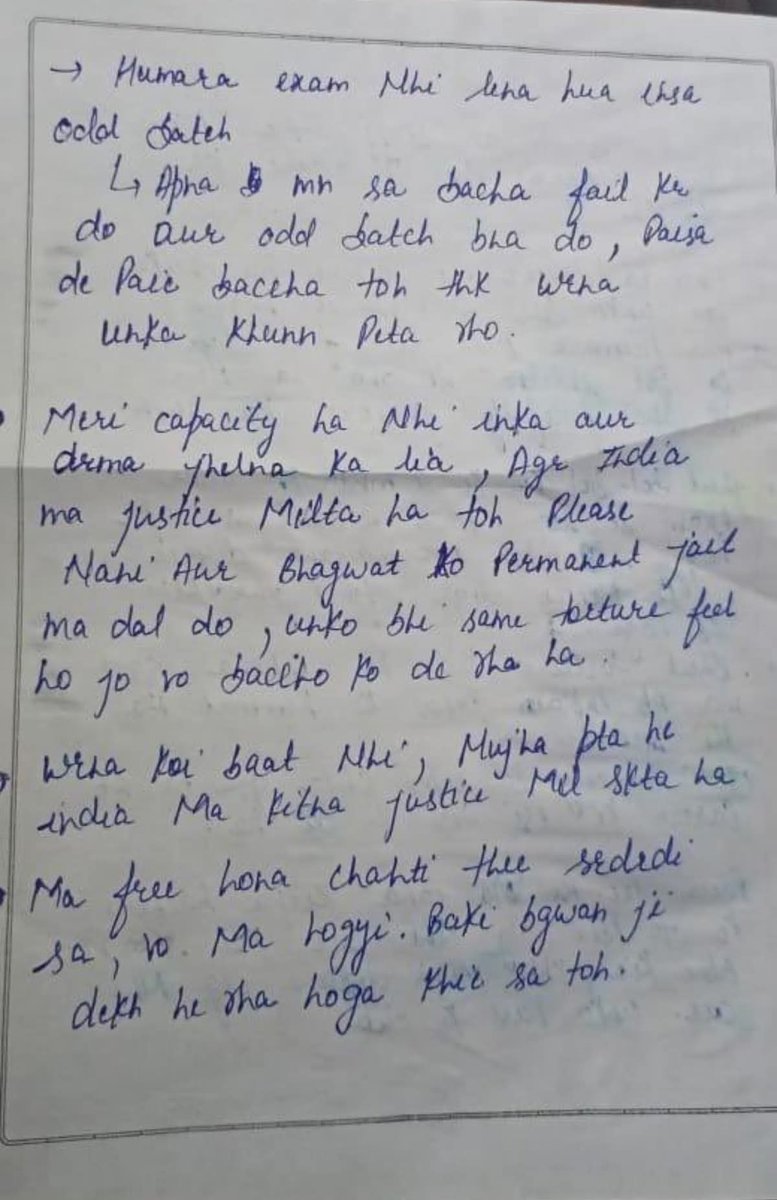 → Humara exam Nhi lena hua insa
odd batch
↳ Apna mn sa bacha fail kr
do aur odd batch bna do, Paisa
de Paie baccha toh thk wrna
unka khunn Peta rho.
Meri capacity ha Nhi inka aur
drma jhelna ka lia, Agr India
ma justice Milta ha toh Please
Nahi Aur Bhagwat ko Permanent jail
ma dal do, unko bhi same torture feel
ho jo vo baccho ko de rha ha.
wrna koi baat Nhi, Mujha pta he
india Ma kitna justice Mil skta ha
Ma free hona chahti thee srdrdi
sa, vo Ma hogyi. Baki bgwan ji
dekh he rha hoga khi sa toh.